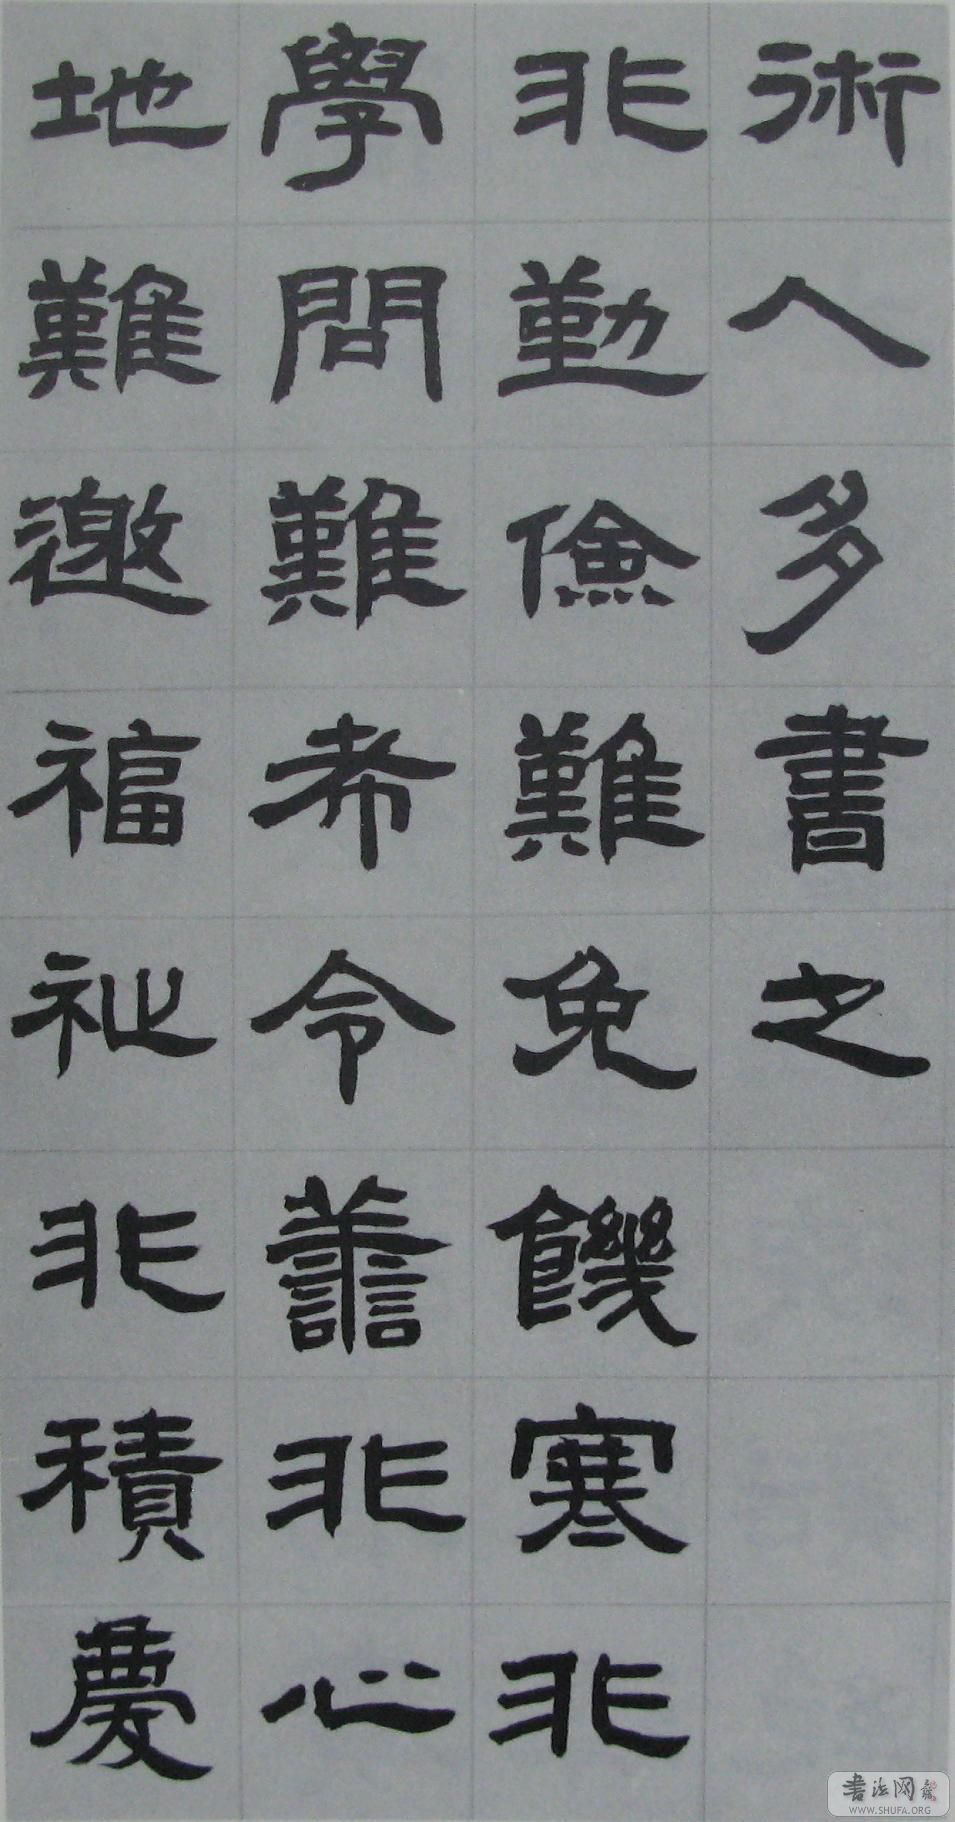 術人多書之
非勤儉難免饑寒非
學問難希令譱非心
地難邀福祉非積慶
書法网
WWW.SHUFA.ORG